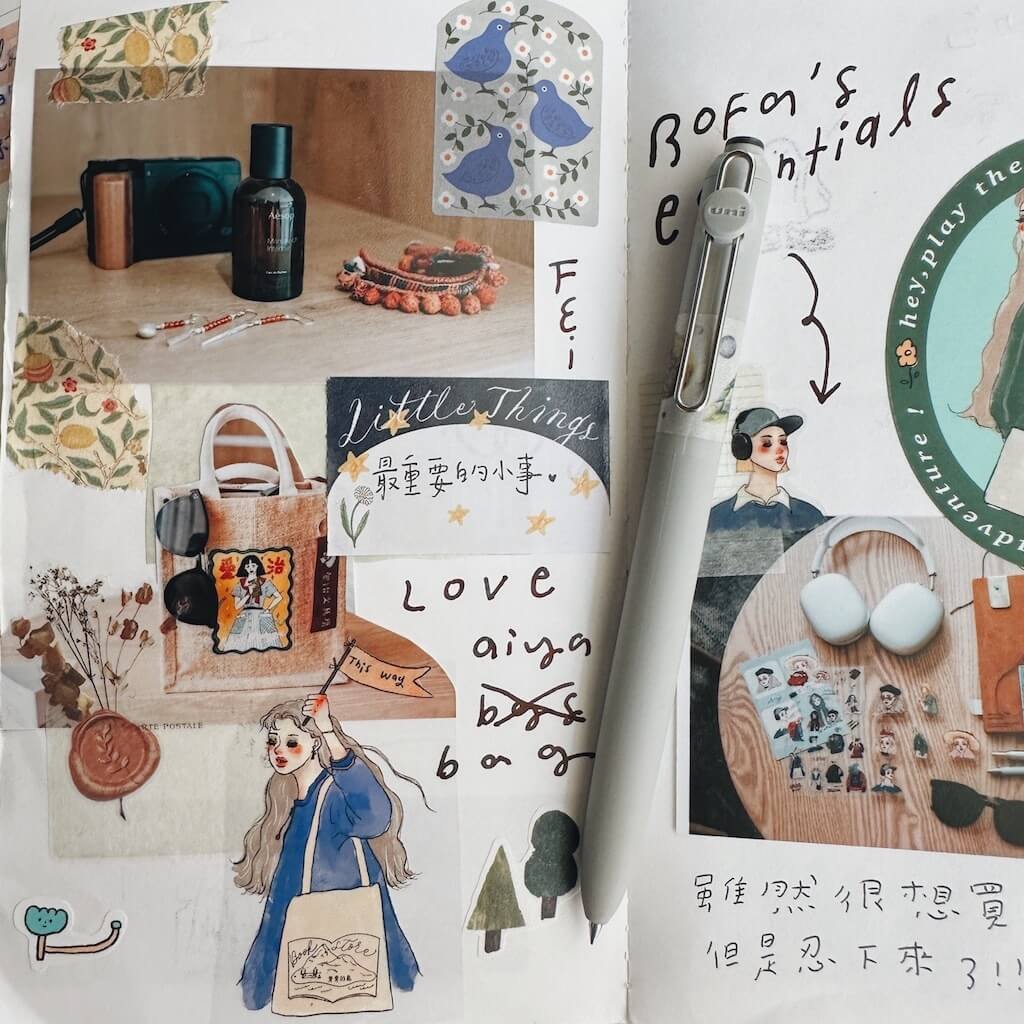 Aēsop
Little Things
最重要的的小事
愛 治
This way
CARTE POSTALE
Book Store
FEi
LOVE
aiya
bag
Bofa's
e ntials
uni
hey, play the
adventure !
雖然很想買
但是忍下來了!!